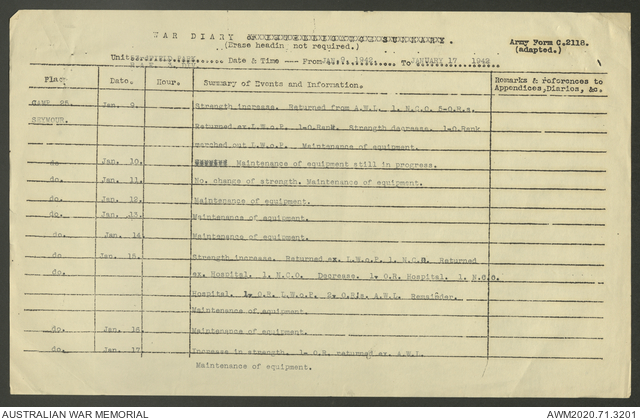 WAR DIARY OR INTELLIGENCE SUMMARY.
(Erase headin not required.)
Army Form C.2118.
(adapted.)
Unit Date & Time --- From JAN 9. 1942 To JANUARY 17 1942
Place Date. Hour. Summary of Events and Information. Remarks & references to Appendices, Diaries, &c.
CAMP Jan. 9. Strength increase. Returned from A.W.L. 1. N.C.O. 5-O.R.s.
SEYMOUR. Returned ex.L.W.o.P. 1-O.Rank. Strength decrease. 1-O.Rank
marched out L.W.o.P. Maintenance of equipment.
do Jan. 10. Maintenance of equipment still in progress.
do. Jan. 11. No. change of strength. Maintenance of equipment.
do. Jan. 12. Maintenance of equipment.
do. Jan. 13. Maintenance of equipment.
do. Jan. 14 Maintenance of equipment.
do. Jan. 15. Strength increase. Returned ex. L.W.o.P. 1. N.C.O. Returned
do. ex. Hospital. 1. N.C.O. Decrease. 1. O.R. Hospital. 1. N.C.O.
Hospital. 1. O.R. L.W.o.P. 2. O.R's. A.W.L. Remainder.
Maintenance of equipment.
do. Jan. 16 Maintenance of equipment.
do. Jan. 17 Increase in strength. 1- O.R. returned ex. A.W.L.
Maintenance of equipment.
AUSTRALIAN WAR MEMORIAL AWM2020.71.3201